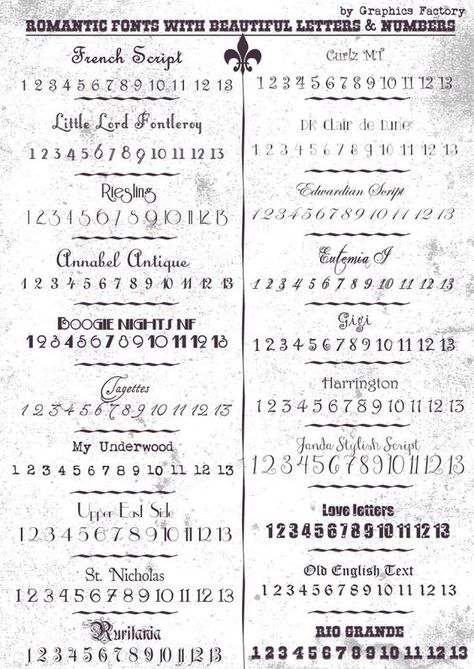 by Graphics Factory
ROMANTIC FONTS WITH BEAUTIFUL LETTERS & NUMBERS
French Script
1 2 3 4 5 6 7 8 9 10 11 12 13
Little Lord Fontleroy
1 2 3 4 5 6 7 8 9 10 11 12 13
Riesling
1 2 3 4 5 6 7 8 9 10 11 12 13
Annabel Antique
1 2 3 4 5 6 7 8 9 10 11 12 13
BOOGIE NIGHTS NF
1 2 3 4 5 6 7 8 9 10 11 12 13
Tagettes
1 2 3 4 5 6 7 8 9 10 11 12 13
My Underwood
1 2 3 4 5 6 7 8 9 10 11 12 13
Upper East Side
1 2 3 4 5 6 7 8 9 10 11 12 13
St. Nicholas
1 2 3 4 5 6 7 8 9 10 11 12 13
Ruritania
1 2 3 4 5 6 7 8 9 10 11 12 13
Curlz MT
1 2 3 4 5 6 7 8 9 10 11 12 13
DK Clair de Lune
1 2 3 4 5 6 7 8 9 10 11 12 13
Edwardian Script
1 2 3 4 5 6 7 8 9 10 11 12 13
Eutemia I
1 2 3 4 5 6 7 8 9 10 11 12 13
Gigi
1 2 3 4 5 6 7 8 9 10 11 12 13
Harrington
1 2 3 4 5 6 7 8 9 10 11 12 13
Janda Stylish Script
1 2 3 4 5 6 7 8 9 10 11 12 13
Love letters
1 2 3 4 5 6 7 8 9 10 11 12 13
Old English Text
1 2 3 4 5 6 7 8 9 10 11 12 13
RIO GRANDE
1 2 3 4 5 6 7 8 9 10 11 12 13